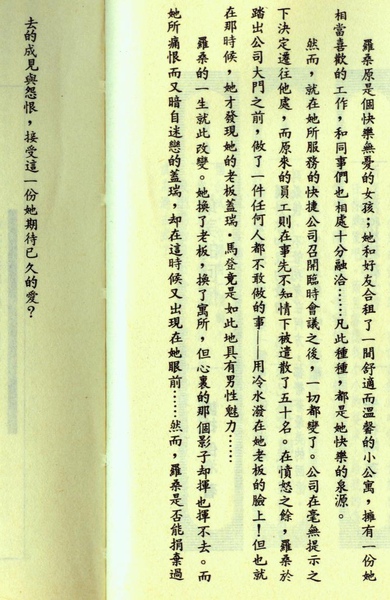 羅桑原是個快樂無憂的女孩；她和好友合租了一間舒適而溫馨的小公寓，擁有一份她
相當喜歡的工作，和同事們也相處十分融洽……凡此種種，都是她快樂的泉源。
然而，就在她所服務的快捷公司召開臨時會議之後，一切都變了。公司在毫無提示之
下決定遷往他處，而原來的員工則在事先不知情下被遣散了五十名。在憤怒之餘，羅桑於
踏出公司大門之前，做了一件任何人都不敢做的事——用冷水潑在她老板的臉上！但也就
在那時候，她才發現她的老板蓋瑞·馬登竟是如此地具有男性魅力……
羅桑的一生就此改變。她換了老板，換了寓所，但心裏的那個影子却揮也揮不去。而
她所痛恨而又暗自迷戀的蓋瑞，却在這時候又出現在她眼前……然而，羅桑是否能捐棄過
去的成見與怨恨，接受這一份她期待已久的愛？